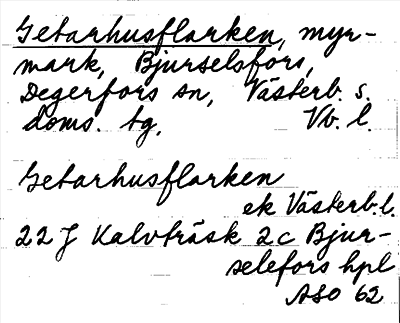 Getarhusflarken, myr-
mark, Bjurselsfors,
Degerfors sn, Västerb. s.
doms. tg, Vb. l.
Getarhusflarken
ek Västerb.l.
22 J Kalvträsk 2c Bjur-
selefors hpl
ASO 62